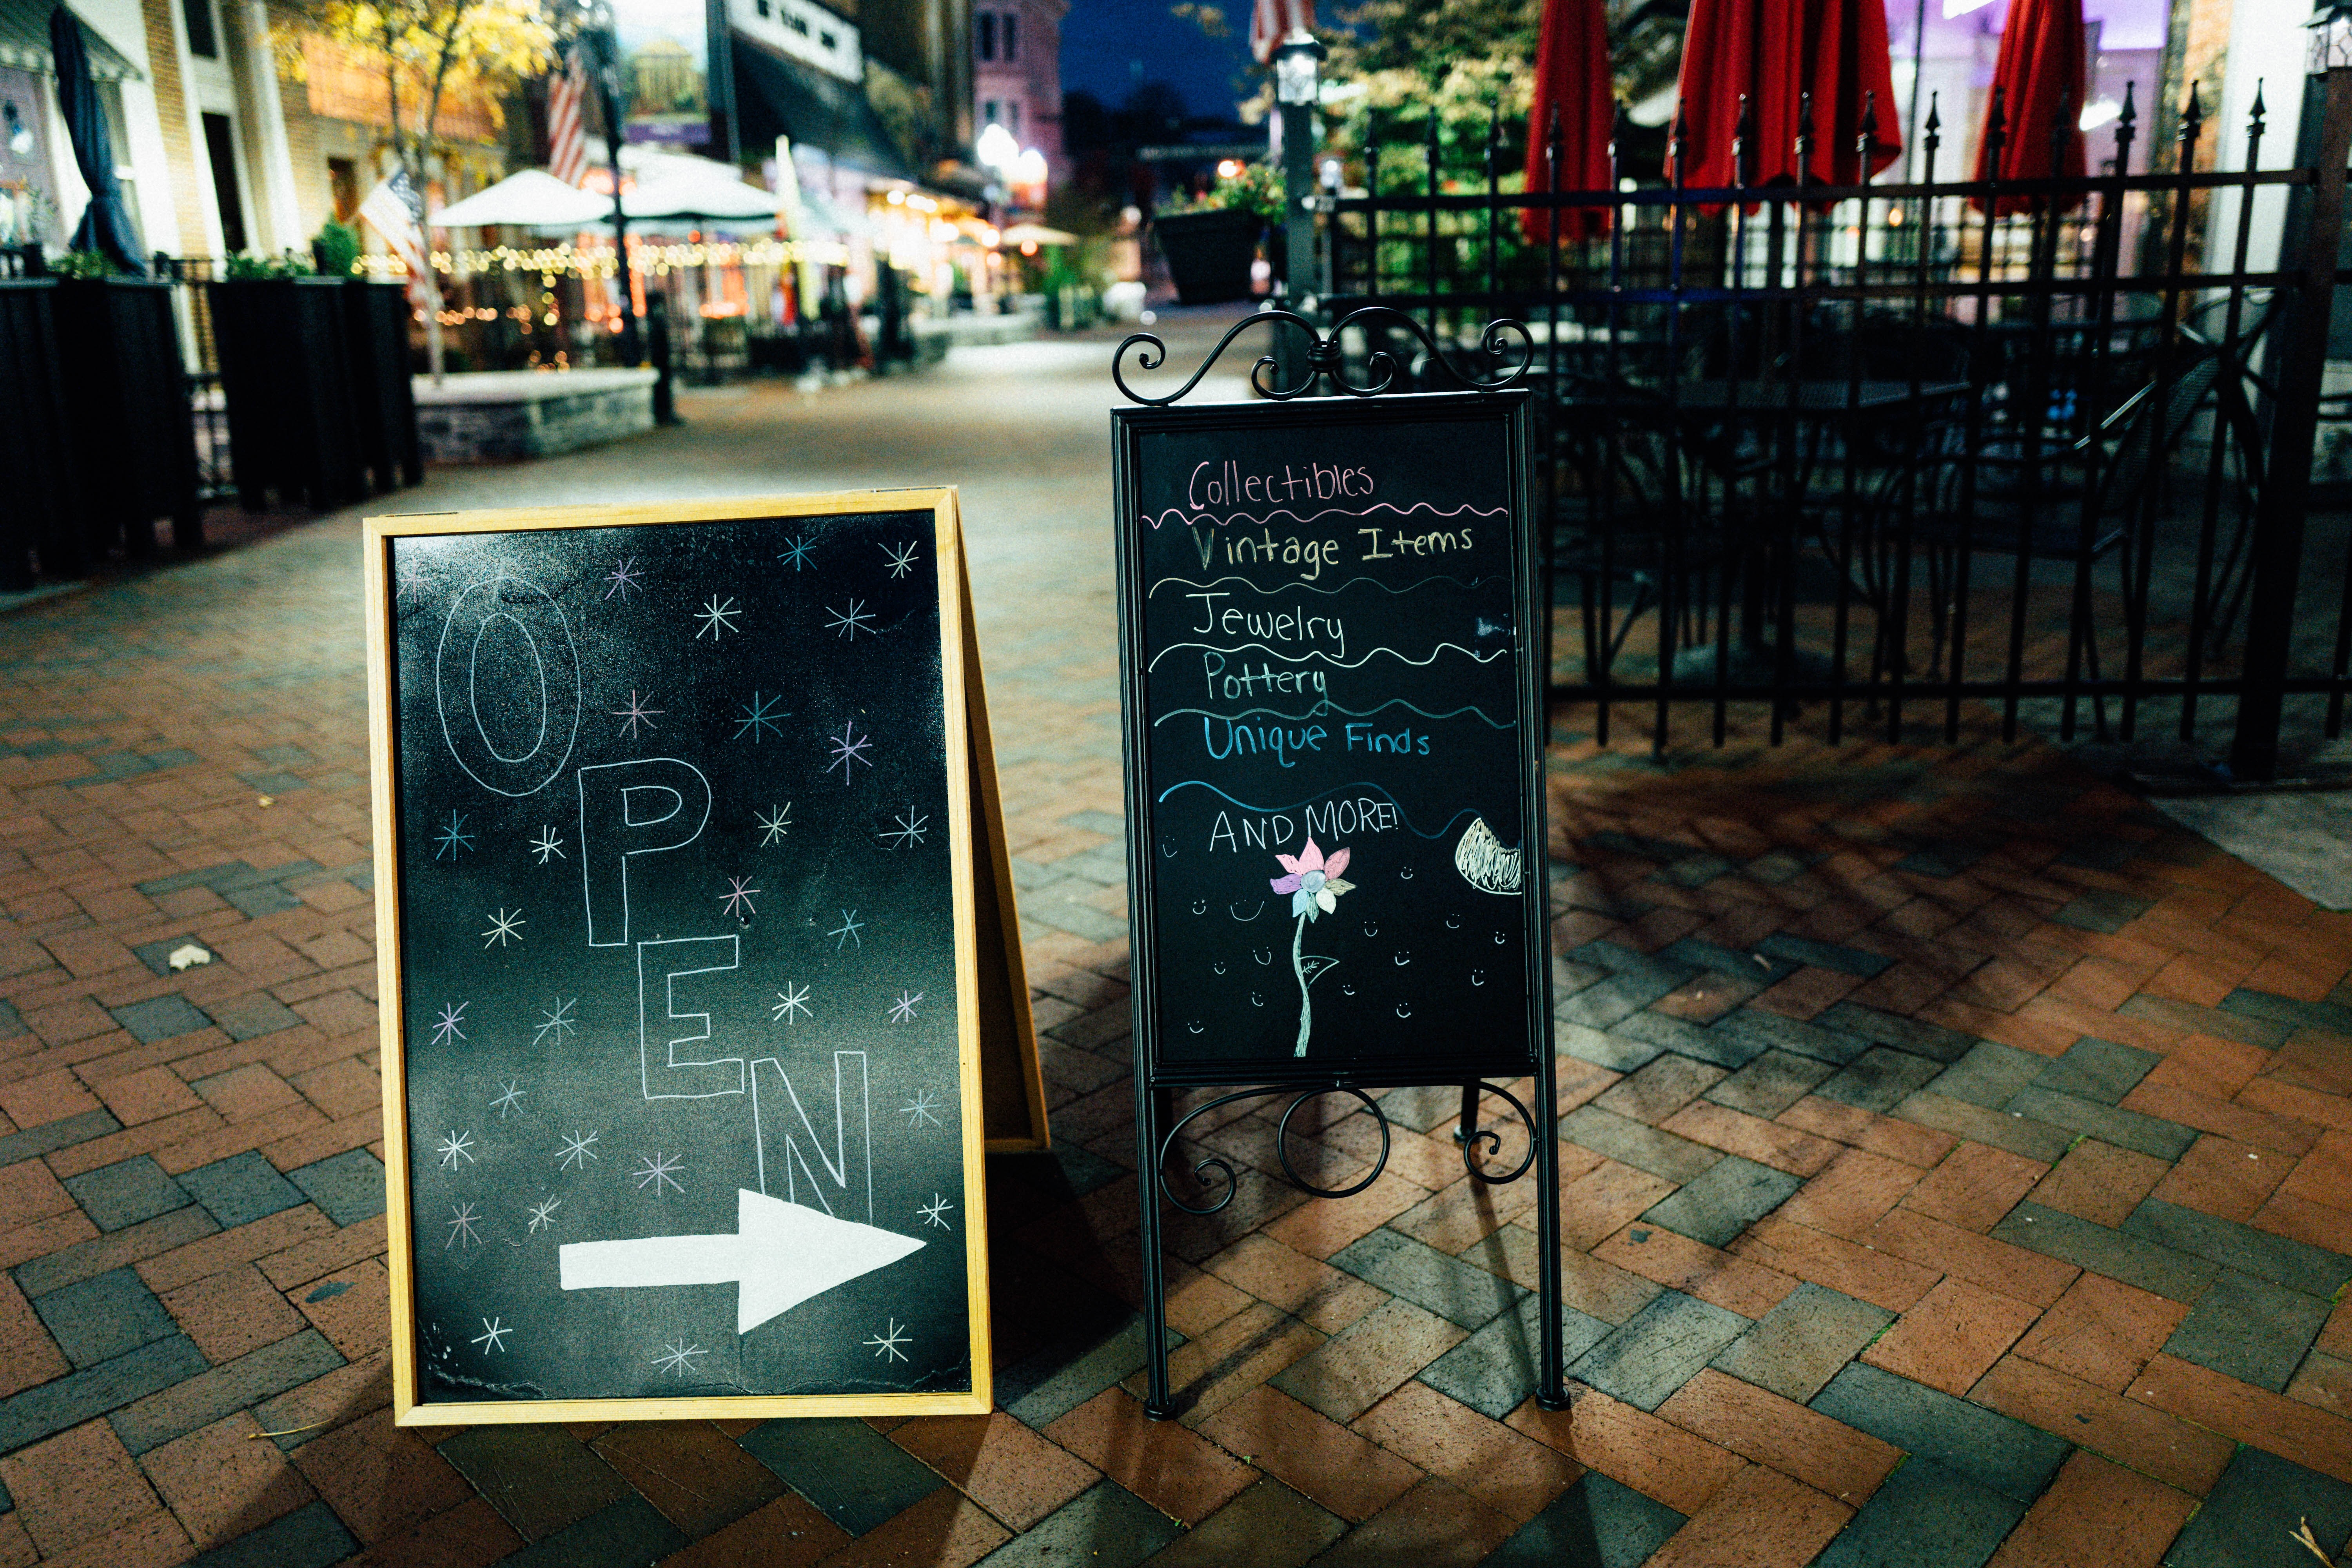 OPEN
Collectibles
Vintage Items
Jewelry
Pottery
Unique Finds
AND MORE!